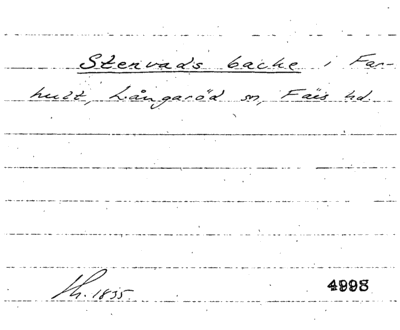 Stenvads backe i Far-
hult, Långaröd sn, Färs hd
Th. 1835. 4998